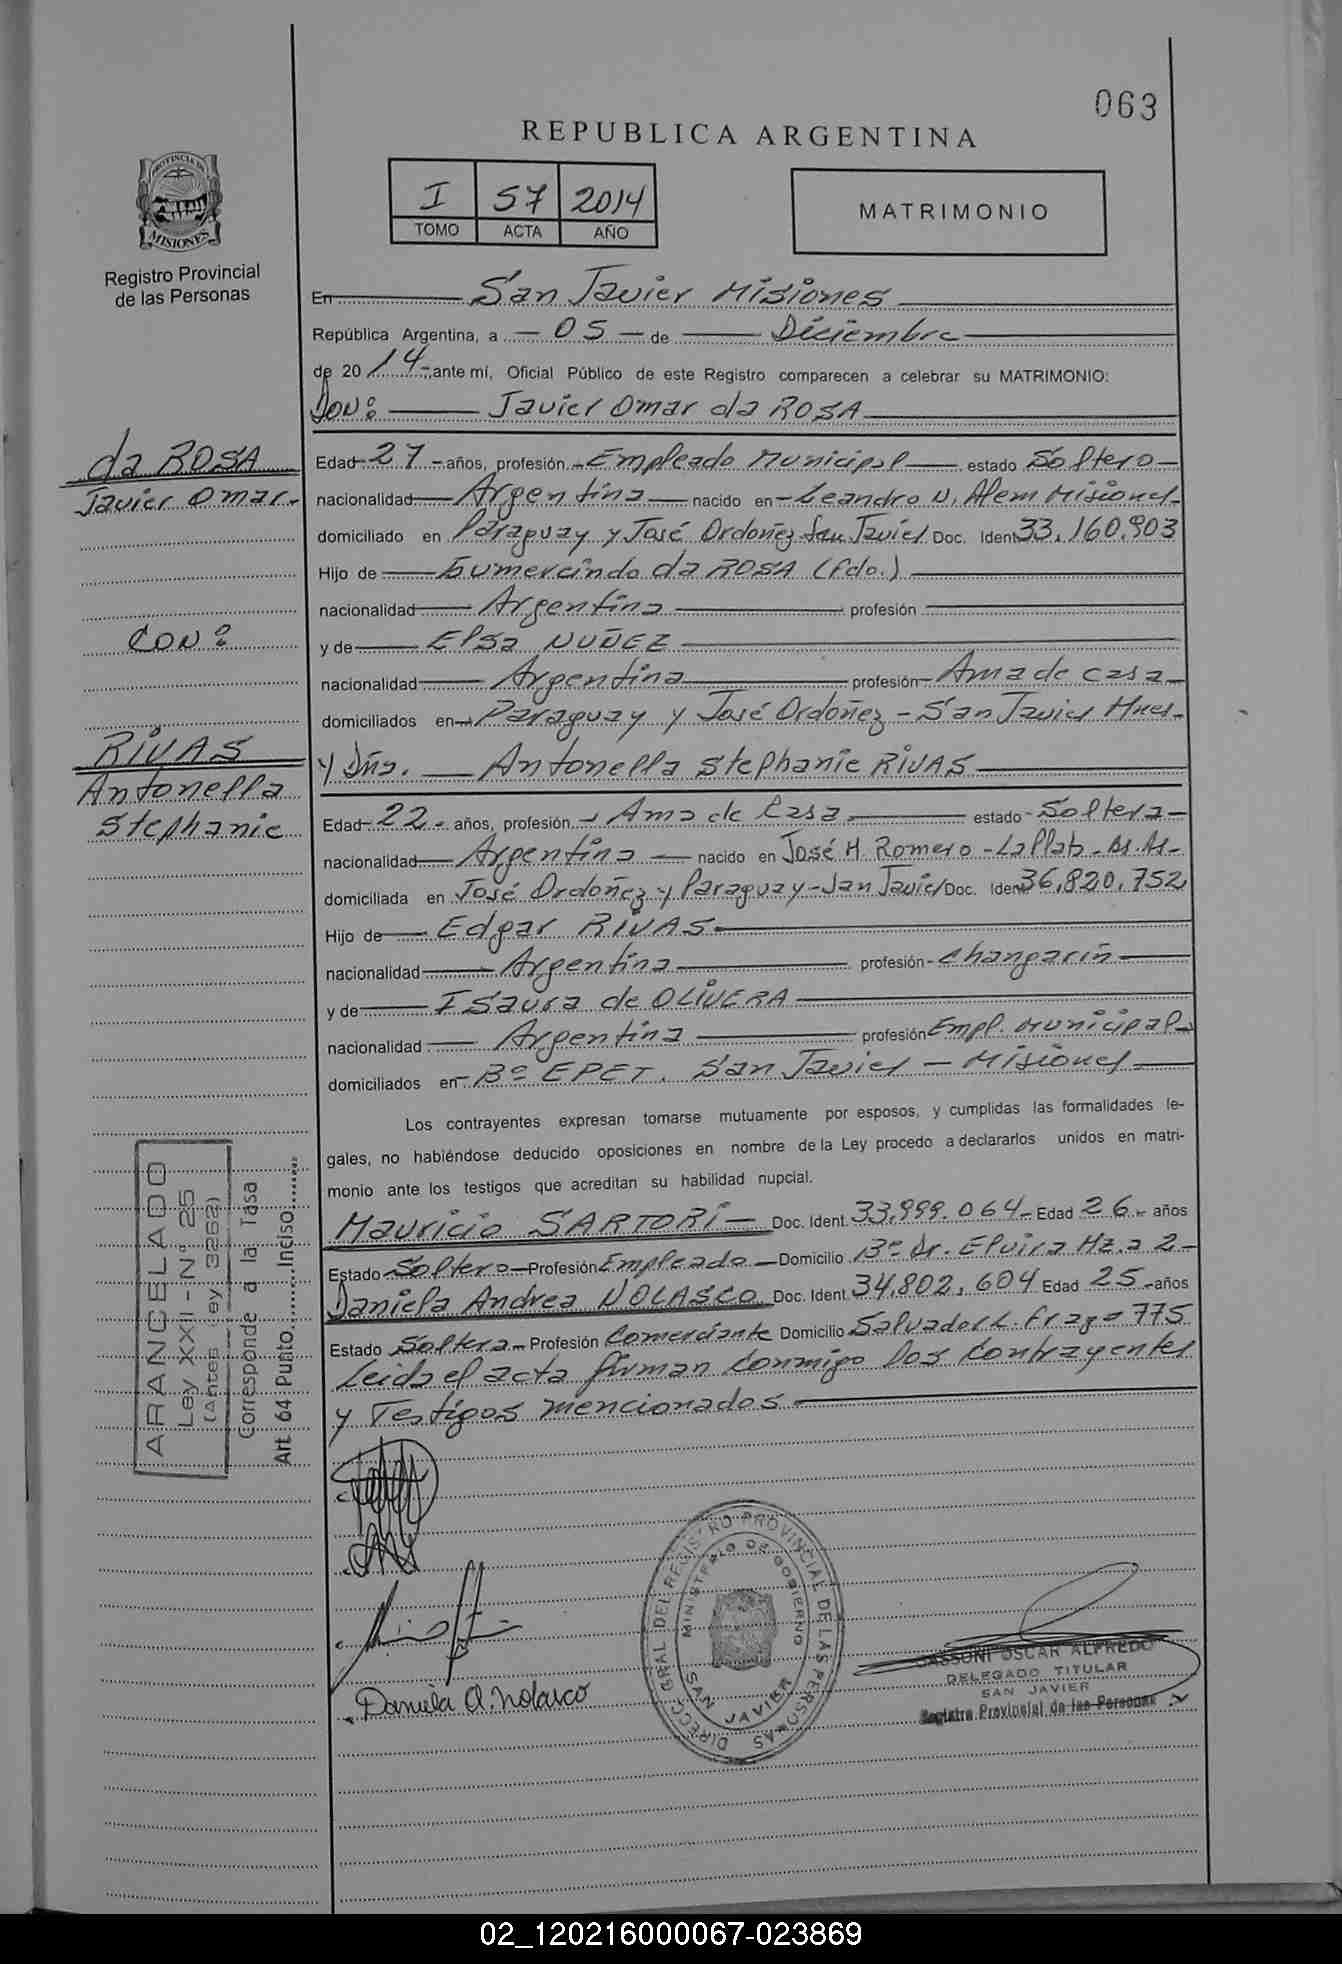 063
REPUBLICA ARGENTINA
I 57 2014
TOMO ACTA AÑO
MATRIMONIO
PROVINCIA DE
MISIONES
Registro Provincial
de las Personas
En San Javier Misiones
República Argentina, a 05 de Diciembre
de 2014 ante mí, Oficial Público de este Registro comparecen a celebrar su MATRIMONIO:
Don: Javier Omar da ROSA
Edad 27 años, profesión Empleado Municipal estado Soltero
nacionalidad Argentina nacido en Leandro N. Alem Misiones
domiciliado en Paraguay y José Ordoñez San Javier Doc. Ident 33.160.903
Hijo de Gumercindo da ROSA (fdo.)
nacionalidad Argentina profesión
y de Elsa NUÑEZ
nacionalidad Argentina profesión Ama de casa
domiciliados en Paraguay y José Ordoñez - San Javier Mnes-
y Dña. Antonella Stephanie RIVAS
Edad 22 años, profesión Ama de Casa estado Soltera
nacionalidad Argentina nacido en José M. Romero - La Plata - Bs. As-
domiciliada en José Ordoñez y Paraguay - San Javier Doc. Ident 36.820.752
Hijo de Edgar RIVAS
nacionalidad Argentina profesión Changarin
y de Isaura de OLIVERA
nacionalidad Argentina profesión Empl. Municipal
domiciliados en Bº EPET. San Javier - Misiones
Los contrayentes expresan tomarse mutuamente por esposos, y cumplidas las formalidades le-
gales, no habiéndose deducido oposiciones en nombre de la Ley procedo a declararlos unidos en matri-
monio ante los testigos que acreditan su habilidad nupcial.
Mauricio SARTORI Doc. Ident. 33.999.064 Edad 26 años
Estado Soltero Profesión Empleado Domicilio Bº Dr. Elvira Mz.a 2
Daniela Andrea NOLASCO Doc. Ident. 34.802.604 Edad 25 años
Estado Soltera Profesión Comerciante Domicilio Salvador L. Fraga 775
Leida el acta firman conmigo los contrayentes
y Testigos mencionados
Daniela A. Nolasco
da ROSA
Javier Omar
CON:
RIVAS
Antonella
Stephanie
ARANCELADO
Ley XXII - Nº 25
(Antes Ley 3262)
Corresponde a la Tasa
Art. 64 Punto Inciso
DIRECC. GRAL DEL REGISTRO PROVINCIAL DE LAS PERSONAS
MINISTERIO DE GOBIERNO
SAN JAVIER
GASSONI OSCAR ALFREDO
DELEGADO TITULAR
SAN JAVIER
Registro Provincial de las Personas
02_120216000067-023869